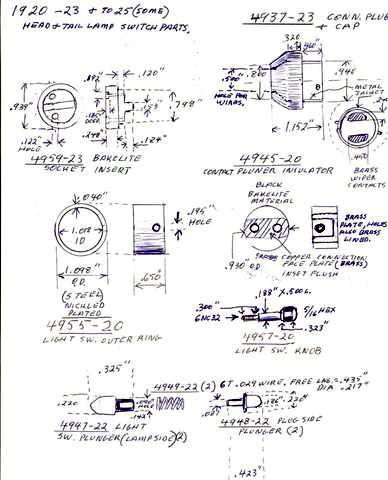 1920 -23 & TO 25 (SOME)
HEAD & TAIL LAMP SWITCH PARTS.
4937-23 CONN. PLUG
& CAP
.320
.460"
.500
.800
.940
HOLE FOR
WIRES.
B
METAL
JACKET
1.152"
.450
BRASS
WIPER
CONTACTS
.182"
.120"
.939"
.748"
.185"
DEEP
.248"
.184"
.122"
HOLE
4959-23 BAKELITE
SOCKET INSERT
4945-20
CONTACT PLUNER INSULATOR
BLACK
BAKELITE
MATERIAL
BRASS
PLATE, HOLES
ALSO BRASS
LINED.
.930" O.D.
COPPER CONNECTION
FACE PLATE (BRASS)
INSET FLUSH
.040"
1.018
I.D
1.098"
O.D.
(STEEL)
NICKLED
PLATED
.195"
HOLE
.650
4955-20
LIGHT SW. OUTER RING
.188" X .500 L.
.300"
6NC32
5/16 HEX
.323"
4957-20
LIGHT SW. KNOB
.325"
4949-22 (2) 6T .029 WIRE, FREE LNG. = .435"
DIA .217"
.220
HOLE
.142"
4947-22 LIGHT
SW. PLUNGER (LAMPSIDE) (2)
.186"
.220"
4948-22 PLUG SIDE
PLUNGER (2)
.423"